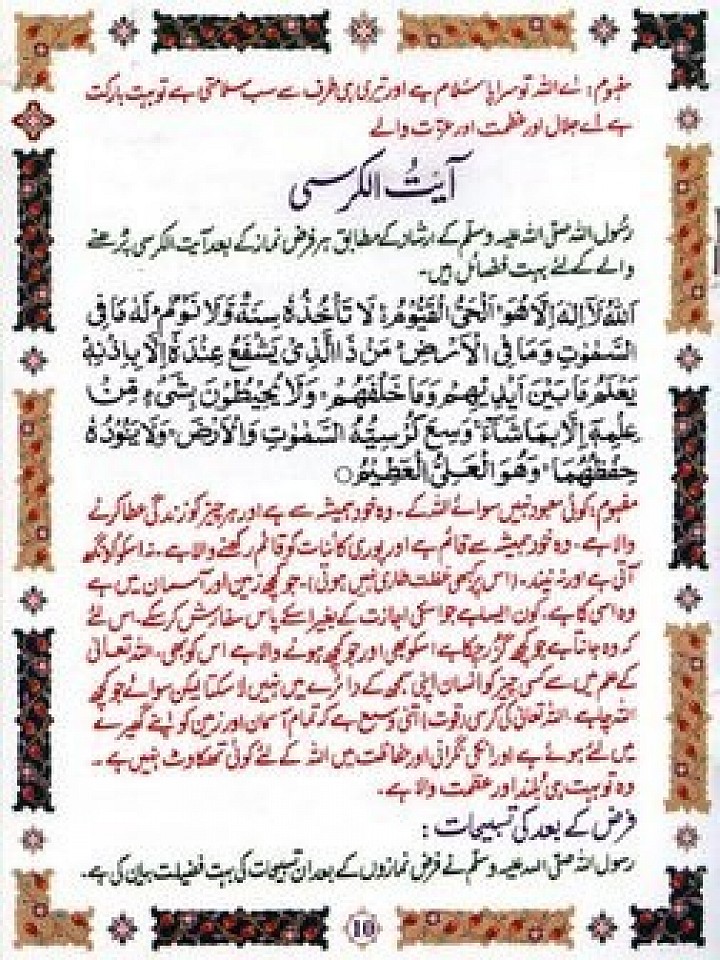 مفہوم: اے اللہ تو سراپا سلام ہے اور تیری ہی طرف سے سب سلامتی ہے تو بہت بابرکت
ہے اے جلال اور عظمت اور عزت والے
آیت الکرسی
رسول اللہ صلی اللہ علیہ وسلم کے ارشاد کے مطابق ہر فرض نماز کے بعد آیت الکرسی پڑھنے
والے کے لئے بہت فضائل ہیں۔
اَللّٰهُ لَآ اِلٰهَ اِلَّا هُوَ ۚ اَلْحَیُّ الْقَیُّوْمُ ۚ لَا تَاْخُذُهٗ سِنَةٌ وَّلَا نَوْمٌ ؕ لَهٗ مَا فِی
السَّمٰوٰتِ وَمَا فِی الْاَرْضِ ؕ مَنْ ذَا الَّذِیْ یَشْفَعُ عِنْدَهٗٓ اِلَّا بِاِذْنِهٖ ؕ
یَعْلَمُ مَا بَیْنَ اَیْدِیْهِمْ وَمَا خَلْفَهُمْ ۚ وَلَا یُحِیْطُوْنَ بِشَیْءٍ مِّنْ
عِلْمِهٖٓ اِلَّا بِمَا شَآءَ ۚ وَسِعَ كُرْسِیُّهُ السَّمٰوٰتِ وَالْاَرْضَ ۚ وَلَا یَـُٔوْدُهٗ
حِفْظُهُمَا ۚ وَهُوَ الْعَلِیُّ الْعَظِیْمُ ○
مفہوم: کوئی معبود نہیں سوائے اللہ کے۔ وہ خود ہمیشہ سے ہے اور ہر چیز کو زندگی عطا کرنے
والا ہے۔ وہ خود ہمیشہ سے قائم ہے اور پوری کائنات کو قائم رکھنے والا ہے۔ نہ اسکو اونگھ
آتی ہے اور نہ نیند۔ (اس پر کبھی غفلت طاری نہیں ہوتی)۔ جو کچھ زمین اور آسمان میں ہے
وہ اسی کا ہے۔ کون ایسا ہے جو اسکی اجازت کے بغیر اسکے پاس سفارش کر سکے۔ اس لئے
کہ وہ جانتا ہے جو کچھ گزر چکا ہے اسکو بھی اور جو کچھ ہونے والا ہے اس کو بھی۔ اللہ تعالیٰ
کے علم میں سے کسی چیز کو انسان اپنی سمجھ کے دائرے میں نہیں لا سکتا لیکن سوائے جو کچھ
اللہ چاہے۔ اللہ تعالیٰ کی کرسی (قوت) اتنی وسیع ہے کہ تمام آسمان اور زمین کو اپنے گھیرے
میں لئے ہوئے ہے اور انکی نگرانی اور حفاظت میں اللہ کے لئے کوئی تھکاوٹ نہیں ہے۔
وہ تو بہت ہی بلند اور عظمت والا ہے۔
فرض کے بعد کی تسبیحات:
رسول اللہ صلی اللہ علیہ وسلم نے فرض نمازوں کے بعد ان تسبیحات کی بہت فضیلت بیان کی ہے۔
10